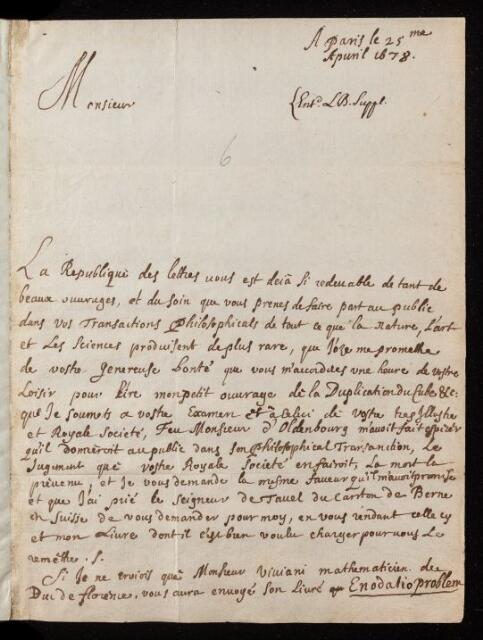 A Paris le 25me
Apuril 1678.
Monsieur
(Ent.d L.B. Suppl.
6
La Republique des lettres uous est deià si redeuable de tant de
beaux ouurages, et du soin que vous prenes de faire part au public
dans vos Transactions Philosophicals de tout ce que la nature, L'art
et Les Sciences produisent de plus rare, que J'ose me promettre
de vostre Genereuse bonté que vous m'accordiez une heure de vostre
Loisir pour lire mon petit ouurage de la Duplication du Cube &c:
que Je soumets a vostre Examen et à celui de vostre tres Illustre
et Royale Societé, Feu Monsieur d'Oldenbourg m'auoit fait esperer
qu'il donneroit au public dans son Philosophical Transanction, Le
Jugement que vostre Royale Societé en fairoit, La mort l'a
preuenu, et Je vous demande la mesme faueur qu'il m'auoit promise
et que J'ai prié le seigneur de Tauel du Canton de Berne
en Suisse de vous demander pour moy, en vous rendant celle cy
et mon Liure dont il s'est bien voulu charger pour uous Le
remettre. S.
Si Je ne croiois que Monsieur Viuiani mathematicien de
Duc de florence, vous aura enuoyé son Liure Enodatio problem